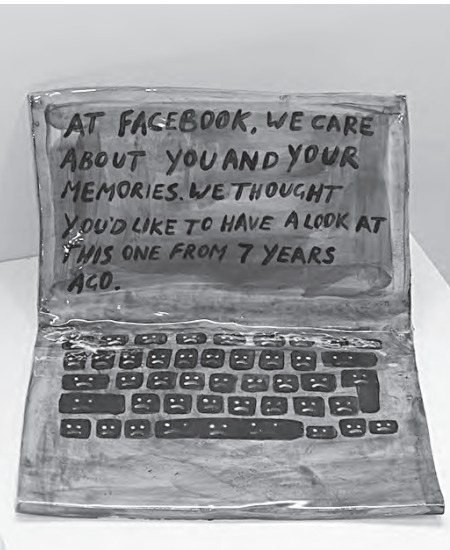 AT FACEBOOK, WE CARE
ABOUT YOU AND YOUR
MEMORIES. WE THOUGHT
YOU'D LIKE TO HAVE A LOOK AT
THIS ONE FROM 7 YEARS
AGO.